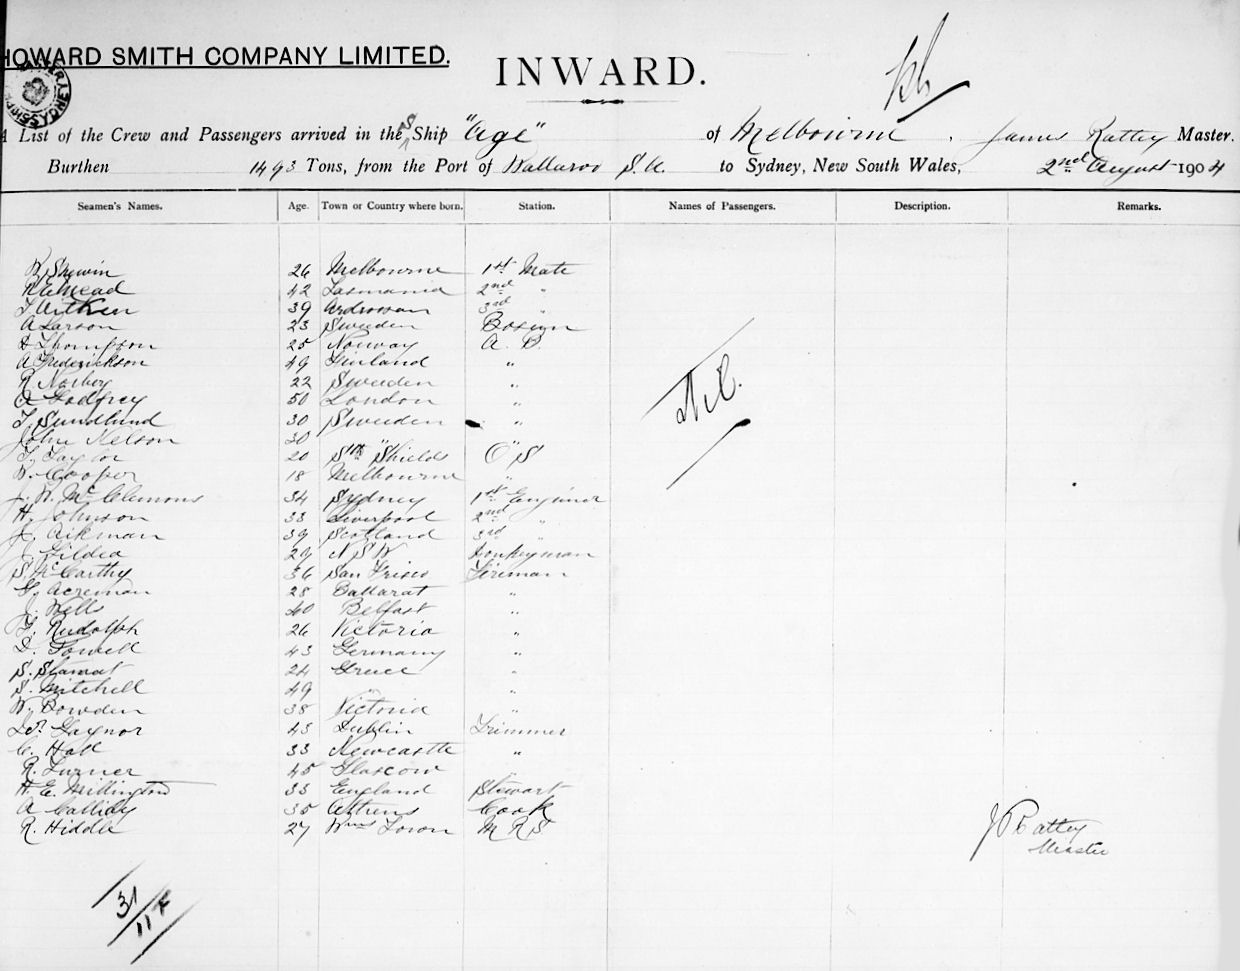 HOWARD SMITH COMPANY LIMITED.
INWARD.
A List of the Crew and Passengers arrived in the S Ship "Age" of Melbourne, James Rattey Master.
Burthen 1493 Tons, from the Port of Wallaroo S.A. to Sydney, New South Wales, 2nd August 1904
Seamen's Names. Age. Town or Country where born. Station. Names of Passengers. Description. Remarks.
26 Melbourne 1st Mate
Mead 42 Tasmania 2nd "
T Aitken 39 Ardrossan 3rd "
A Larson 23 Sweden Bosun
Thompson 25 Norway A.B.
A Frederickson 49 Finland "
R Norboy 22 Sweden "
A Godfrey 50 London "
T. Sundlund 30 Sweden "
John Nelson 30 " "
T. Taylor 20 Sth Shields O S
W. Cooper 18 Melbourne "
J. W. McClemons 34 Sydney 1st Engineer
H. Johnson 33 Liverpool 2nd "
J. Aikman 39 Scotland 3rd "
Gildea 29 N S W Donkeyman
S. McCarthy 36 San Frisco Fireman
Acreman 28 Ballarat "
J. Wells 40 Belfast "
F. Rudolph 26 Victoria "
D. Powell 43 Germany "
S. Stamat 24 Greece "
S. Mitchell 49 " "
W. Bowden 38 Victoria "
Gaynor 43 Dublin Trimmer
C. Hall 33 Newcastle "
R. Turner 45 Glascow
H. E. Millington 33 England Stewart
A Callidy 35 Athens Cook
R. Hiddle 27 Wms Town M R S
Nil.
J Rattey
Master
31